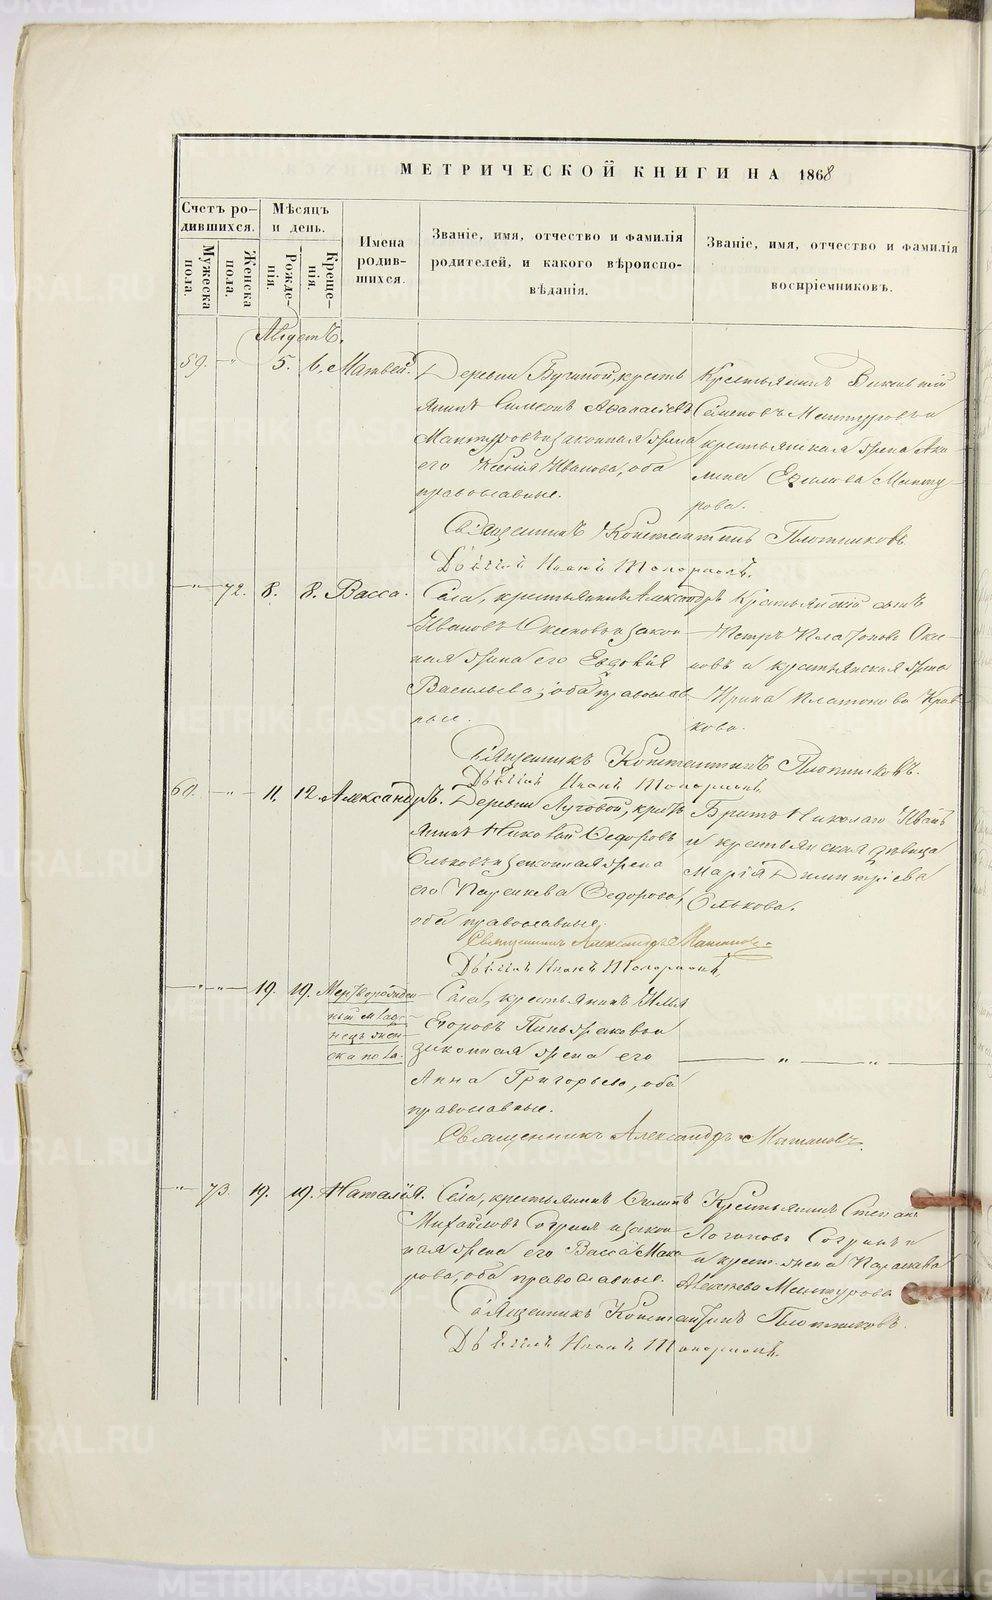 МЕТРИЧЕСКОЙ КНИГИ НА 1868
Счетъ ро-
дившихся.
Мѣсяцъ
и день.
Мужеска
пола.
Женска
пола.
Рожде-
нія.
Креще-
нія.
Имена
родив-
шихся.
Званіе, имя, отчество и фамилія
родителей, и какого вѣроиспо-
вѣданія.
Званіе, имя, отчество и фамилія
воспріемниковъ.
Августъ.
59. " 5. 6. Матвей.
Деревни крестья
янинъ Симеонъ Афанасіевъ
Мантуровъ и законная жена
его Ксенія Иванова, оба
православные.
Крестьянинъ
Семеновъ Мантуровъ и
крестьянская жена Аку
лина Мантурова
рова.
Священникъ Константинъ Плотниковъ
Дьячекъ Иванъ Топорковъ.
" 72. 8. 8. Васса.
Села, крестьянинъ Александръ
Ивановъ и закон
ная жена его Евдокія
Васильева, оба православ
ные.
Крестьянскій сынъ
Петръ Платоновъ
новъ и крестьянская жена
Ирина Платонова
кова.
Священникъ Константинъ Плотниковъ.
Дьячекъ Иванъ Топорковъ
60. " 11. 12. Александръ.
Деревни Луговой, кресть
янинъ Николай Федоровъ
Ольковъ и законная жена
его Параскева Федорова,
оба православные.
Братъ Николаго Иванъ
и крестьянская дѣвица
Марія Димитріева
Олькова.
Священникъ Александръ
Дьячекъ Иванъ Топорковъ
" " 19. 19. Мертворожден
ный млад-
нецъ жен-
ска пола.
Села, крестьянинъ Илья
Егоровъ и
законная жена его
Анна Григорьева, оба
православные.
" "
Священникъ Александръ
" 73. 19. 19. Наталія.
Села, крестьянинъ Филипъ
Михайловъ Согринъ и закон
ная жена его Васса Мака
рова, оба православные.
Крестьянинъ Степанъ
Логиновъ Согринъ и
и крест. жена Параскева
Алексѣева Мантурова
Священникъ Константинъ Плотниковъ.
Дьячекъ Иванъ Топорковъ.
METRIKI.GASO-URAL.RU